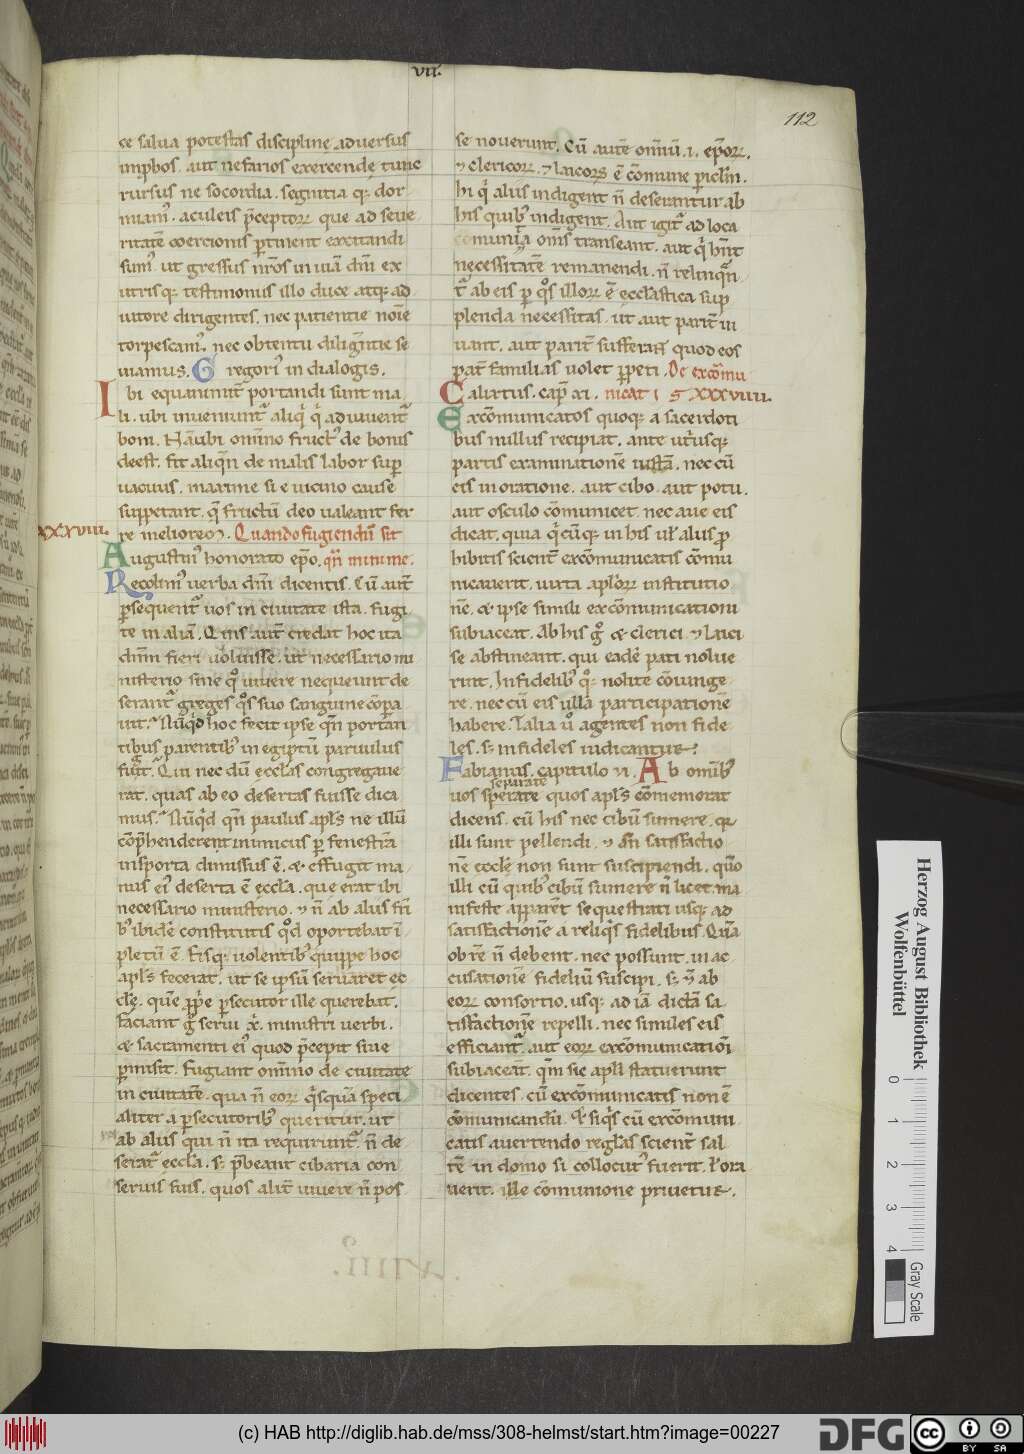 vii.
112
ce salua potestas discipline aduersus
inp̄bos. aut nefarios exercende tunc
rursus ne socordia. segnitia q; dor
miam᾽. aculeis p̄ceptoꝝ que ad seue
ritatē coercionis ꝑtinent excitandi
sum᾽. ut gressus nr̄os in uiā dn̄i ex
utrisq; testimoniis illo duce atq; ad
iutore dirigentes. nec patientie noīe
torpescam᾽. nec obtentu dilign̄tie se
uiamus. Gregori᾽ in dialogis.
Ibi equanimit̄ portandi sunt ma
li. ubi inueniunt᷑ aliq̇ q̇ adiuuent᷑
boni. Nā ubi om̄ino fruct᾽ de bonis
deest. fit aliqn̄ de malis labor suꝑ
uacuus. maxime si e uicino cause
suppetant. q̄ fructū deo ualeant fer
XXXVIII. re meliorē. Quando fugiendū sit
Augustin᾽ honorato ep̄o. qn̄ minime.
Recolim᾽ uerba dn̄i dicentis. Cū aut̄
ꝑsequent᷑ uos in ciuitate ista. fugi
te in aliā. Quis aut̄ credat hoc ita
dn̄m fieri uoluisse. ut necessario mi
nisterio sine qͦ uiuere nequeunt de
serant᷑ greges qͦs suo sanguine cōpa
uit. Nūq̇d hoc fecit ipse qn̄ portan
tibus parentib᾽ in egiptū paruulus
fugit. Qui nec dū ecclas congregaue
rat. quas ab eo desertas fuisse dica
mus. Nūq̇d qn̄ paulus apl̄s ne illū
cōp̄henderent inimicus ꝑ fenestrā
insporta dimissus ē. & effugit ma
nus ei᾽ deserta ē eccl̄a. que erat ibi
necessario ministerio. ⁊ n̄ ab aliis fr̄i
b᾽ ibidē constitutis qͦd oportebat ī
pletū ē. Eisq; uolentib᾽ quippe hoc
apl̄s fecerat. ut se ipsū seruaret ec
cl̄ę. quē ꝓpe ꝑsecutor ille querebat.
Faciant g̊ serui x̄. ministri uerbi.
& sacramenti ei᾽ quod p̄cepit siue
ꝑmisit. Fugiant om̄ino de ciuitate
in ciuitatē. qua n̄ eoꝝ q̇squā speci
aliter a ꝑsecutorib᾽ queritur. ut
ab aliis qui n̄ ita requirunt᷑. n̄ de
serat᷑ eccl̄a. s; p̄beant cibaria con
seruis suis. quos alit̄ uiuere n̄ pos
se nouerunt. Cū autē omniū. i. ep̄oꝝ.
⁊ clericoꝝ. ⁊ laicoꝝ ē cōmune ꝑiclm̄.
hi q̇ aliis indigent n̄ deserantur ab
his quib᾽ indigent. Aut igit᷑ ad loca
comunita om̄s transeant. aut q̇ hn̄t
necessitatē remanendi. n̄ relinquan
t᷑ ab eis ꝑ qͦs illoꝝ ē ecclastica sup
plenda necessitas. ut aut parit̄ ui
uant. aut parit̄ sufferant quod eos
pat̄ familias uolet ꝑpeti. De excōmu
Calixtus. cap̄ xi. nicatis XXXVIIII.
Excōmunicatos quoque a sacerdoti
bus nullus recipiat. ante ut̄usq;
partis examinationē iustā. nec cū
eis in oratione. aut cibo. aut potu.
aut osculo cōmunicet. nec aue eis
dicat. quia q̇cūq; in his ul̄ aliis ꝓ
hibitis scient̄ excōmunicatis cōmu
nicauerit. iuxta apl̄oꝝ institutio
nē. & ipse simili excōmunicationi
subiaceat. Ab his g̊ & clerici ⁊ laici
se abstineant. qui eadē pati nolue
rint. Infidelib᾽ q; nolite cōiunge
re. nec cū eis ulla participatione
habere. Talia ů agentes non fide
les. s; infideles iudicantur.
Fabianus. capitulo vi. Ab omib᾽
separate
uos sperate quos apl̄s cōmemorat
dicens. cū his nec cibū sumere. q̄
illi sunt pellendi. ⁊ an̄ satisfactio
nē ęcclę non sunt suscipiendi. quō
illi cū quib᾽ cibū sumere n̄ licet. ma
nifeste apparēt sequestrati usq; ad
satisfactionē a reliq̇s fidelibus. Quā
ob rē n̄ debent. nec possunt. in ac
cusationē fideliū suscipi. s; ⁊ ab
eoꝝ consortio. usq; ad iā dictā sa
tisfactionē repelli. nec similes eis
efficiant᷑. aut eoꝝ excōmunicatiōi
subiaceāt. qm̄ sic apl̄i statuerunt
dicentes. cū excōmunicatis non ē
cōmunicandū. & siq̇s cū excōmuni
catis auertendo reglas scient̄ sal
tē in domo si collocut᾽ fuerit. ł ora
uerit. ille cōmunione priuetur.
Herzog August Bibliothek
Wolfenbüttel
0 1 2 3 4
Gray Scale
(c) HAB http://diglib.hab.de/mss/308-helmst/start.htm?image=00227
DFG
cc BY SA